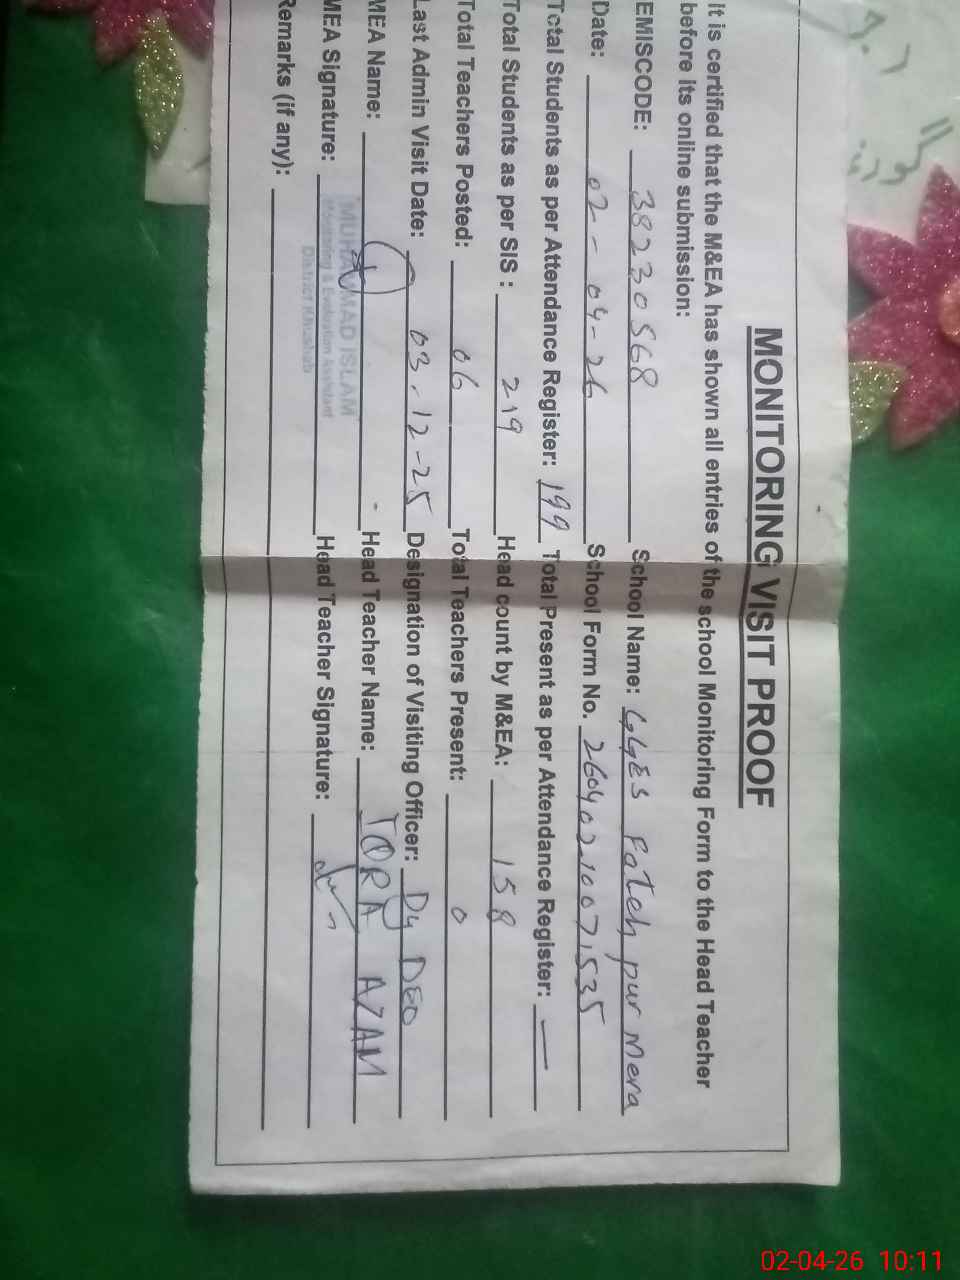 MONITORING VISIT PROOF
It is certified that the M&EA has shown all entries of the school Monitoring Form to the Head Teacher
before its online submission:
EMISCODE: 38230568 School Name: GGES Fateh pur Mera
Date: 02-04-26 School Form No. 260402-1007,535
Total Students as per Attendance Register: 199 Total Present as per Attendance Register: —
Total Students as per SIS: 219 Head count by M&EA: 158
Total Teachers Posted: 06 Total Teachers Present: 0
Last Admin Visit Date: 03-12-25 Designation of Visiting Officer: Dy DEO
MEA Name: Head Teacher Name: IQRA AZAM
MEA Signature: Head Teacher Signature:
Remarks (if any):
MUHAMMAD ISLAM
Monitoring & Evaluation Assistant
District Khushab
02-04-26 10:11